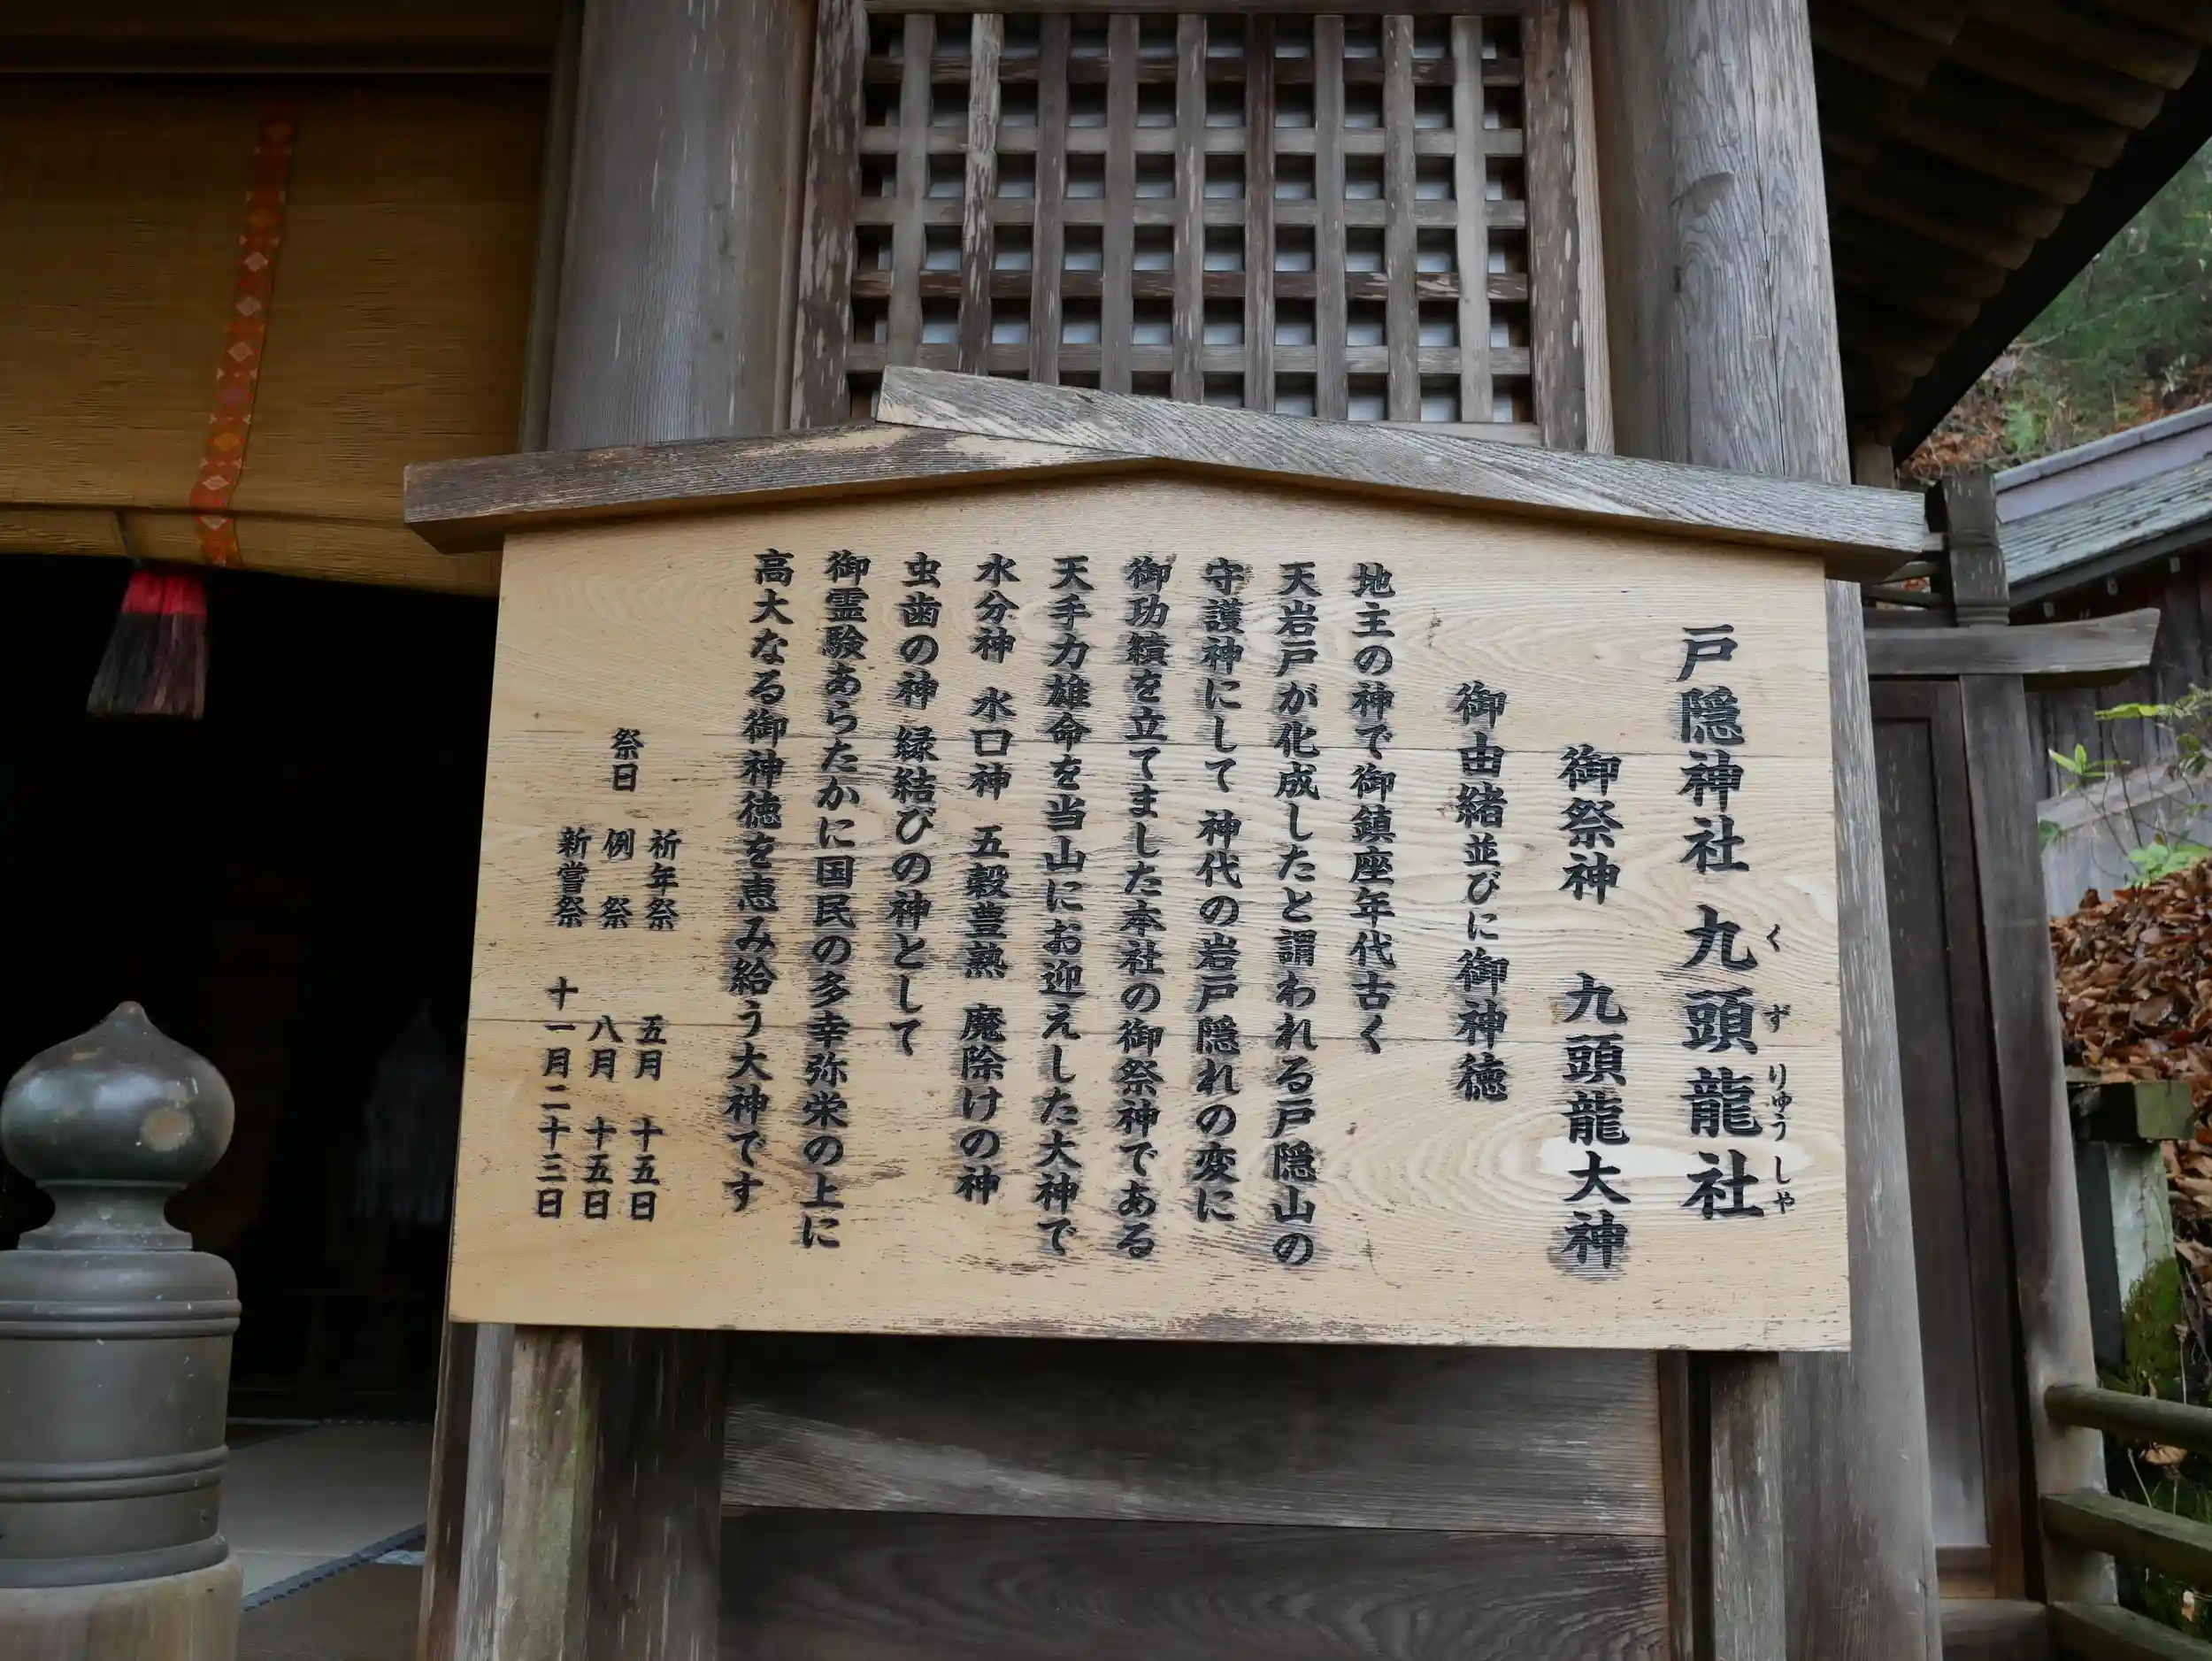 戸隠神社 九頭龍社
くずりゅうしゃ
御祭神 九頭龍大神
御由緒並びに御神徳
地主の神で御鎮座年代古く
天岩戸が化成したと謂われる戸隠山の
守護神にして 神代の岩戸隠れの変に
御功績を立てました本社の御祭神である
天手力雄命を当山にお迎えした大神で
水分神 水口神 五穀豊熟 魔除けの神
虫歯の神 縁結びの神として
御霊験あらたかに国民の多幸弥栄の上に
高大なる御神徳を恵み給う大神です
祭日
祈年祭 五月 十五日
例 祭 八月 十五日
新嘗祭 十一月二十三日